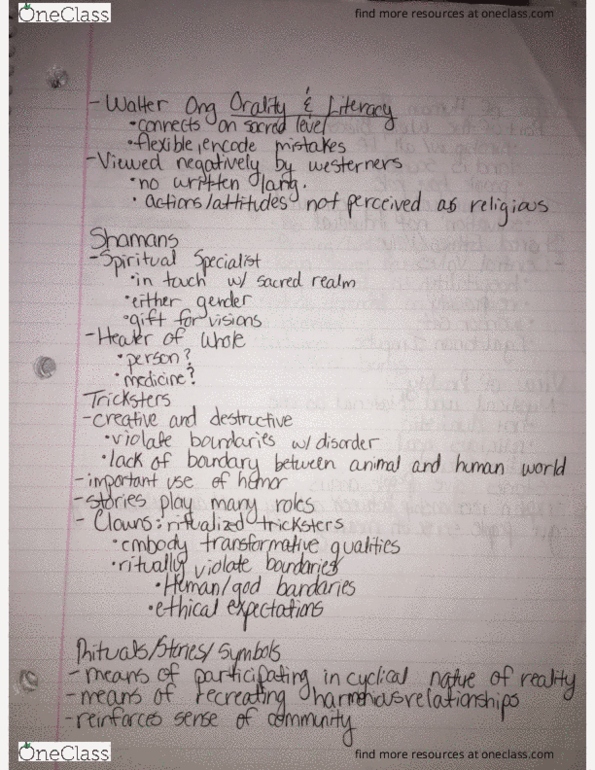 OneClass
find more resources at oneclass.com
- Walter Ong Orality & Literacy
• connects on sacred level
• flexible, encode mistakes
- Viewed negatively by westerners
• no written lang.
• actions/attitudes not perceived as religious
Shamans
- Spiritual Specialist
• in touch w/ sacred realm
• either gender
• gift for visions
- Healer of whole
• person?
• medicine?
Tricksters
- creative and destructive
• violate boundaries w/ disorder
• lack of boundary between animal and human world
- important use of homor
- stories play many roles
- Clowns: ritualized tricksters
• embody transformative qualities
• ritually violate boundaries
• Human/god bandaries
• ethical expectations
Rituals/Stories/Symbols
- means of participating in cyclical natue of reality
- means of recreating harmonious relationships
- reinforces sense of community
OneClass
find more resources at oneclass.com